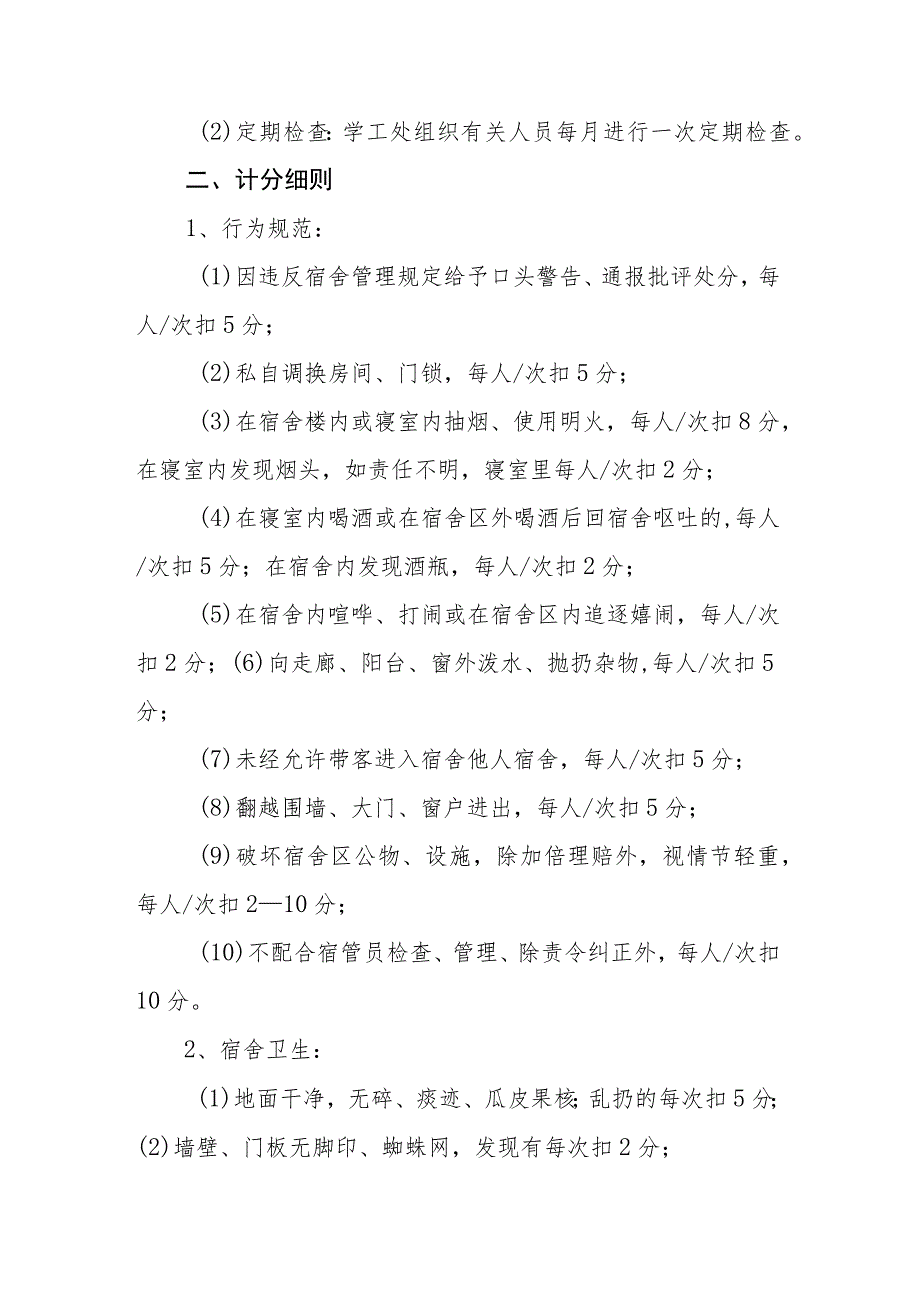 (2)定期检查：学工处组织有关人员每月进行一次定期检查。
二、计分细则
1、行为规范：
(1)因违反宿舍管理规定给予口头警告、通报批评处分，每
人/次扣5分；
(2)私自调换房间、门锁，每人/次扣5分；
(3)在宿舍楼内或寝室内抽烟、使用明火，每人/次扣8分，
在寝室内发现烟头，如责任不明，寝室里每人/次扣2分；
(4)在寝室内喝酒或在宿舍区外喝酒后回宿舍呕吐的,每人
/次扣5分；在宿舍内发现酒瓶，每人/次扣2分；
(5)在宿舍内喧哗、打闹或在宿舍区内追逐嬉闹，每人/次
扣2分；(6)向走廊、阳台、窗外泼水、抛扔杂物,每人/次扣5
分；
(7)未经允许带客进入宿舍他人宿舍，每人/次扣5分；
(8)翻越围墙、大门、窗户进出，每人/次扣5分；
(9)破坏宿舍区公物、设施，除加倍理赔外，视情节轻重，
每人/次扣2—10分；
(10)不配合宿管员检查、管理、除责令纠正外，每人/次扣
10分。
2、宿舍卫生：
(1)地面干净，无碎、痰迹、瓜皮果核；乱扔的每次扣5分；
(2)墙壁、门板无脚印、蜘蛛网，发现有每次扣2分；